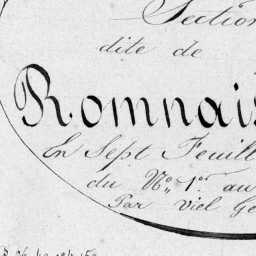 Section
dite de
Romnais
En Sept Feuill
du N° 1er au
Par Viel Gé